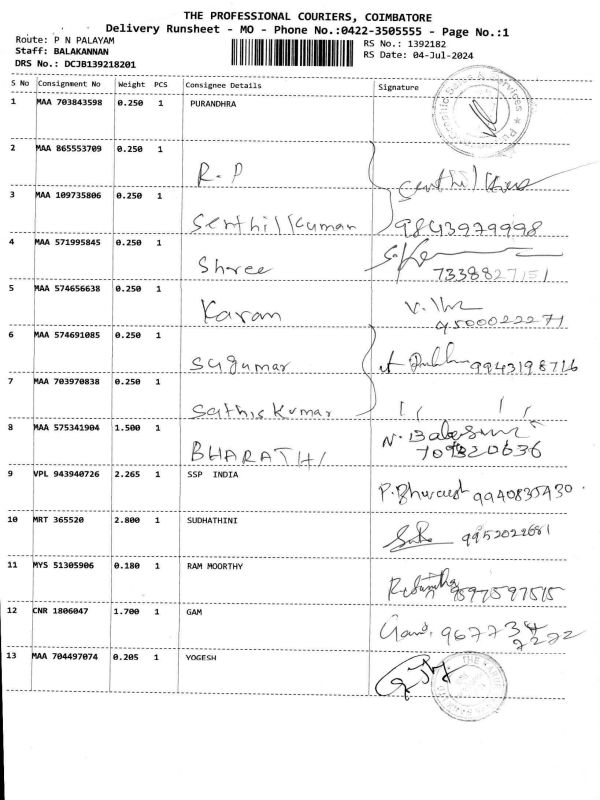 THE PROFESSIONAL COURIERS, COIMBATORE
Delivery Runsheet - MO - Phone No.:0422-3505555 - Page No.:1
Route: P N PALAYAM
RS No.: 1392182
Staff: BALAKANNAN
RS Date: 04-Jul-2024
DRS No.: DCJB139218201
S No Consignment No Weight PCS Consignee Details Signature
1 MAA 703843598 0.250 1 PURANDHRA
2 MAA 865553709 0.250 1 R.P
3 MAA 109735806 0.250 1 Senthil Kumar 9843979998
4 MAA 571995845 0.250 1 Shree 7338827151
5 MAA 574656638 0.250 1 Karan 9500022271
6 MAA 574691085 0.250 1 Sugumar 9943198716
7 MAA 703970838 0.250 1 Sathis Kumar
8 MAA 575341904 1.500 1 BHARATHI
9 VPL 943940726 2.265 1 SSP INDIA 9940835930
10 MRT 365520 2.800 1 SUDHATHINI
11 MYS 51305906 0.180 1 RAM MOORTHY 9597597515
12 CNR 1806047 1.700 1 GAM
13 MAA 704497074 0.205 1 YOGESH